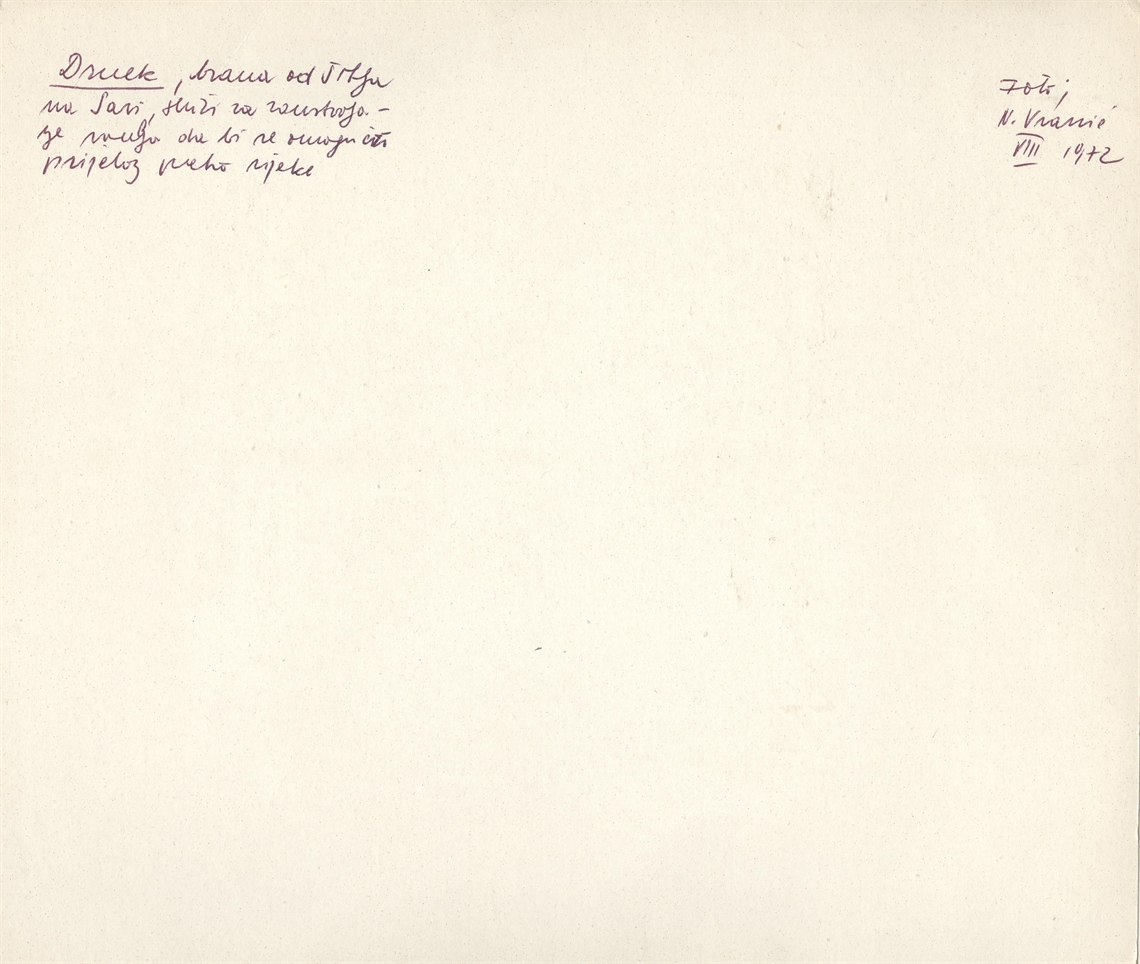 Drnek, brana od šiblja
na Savi, služi za zaustavlja-
nje mulja da bi se omogućio
prijelaz preko rijeke
Foto:
N. Vranić
VIII 1972